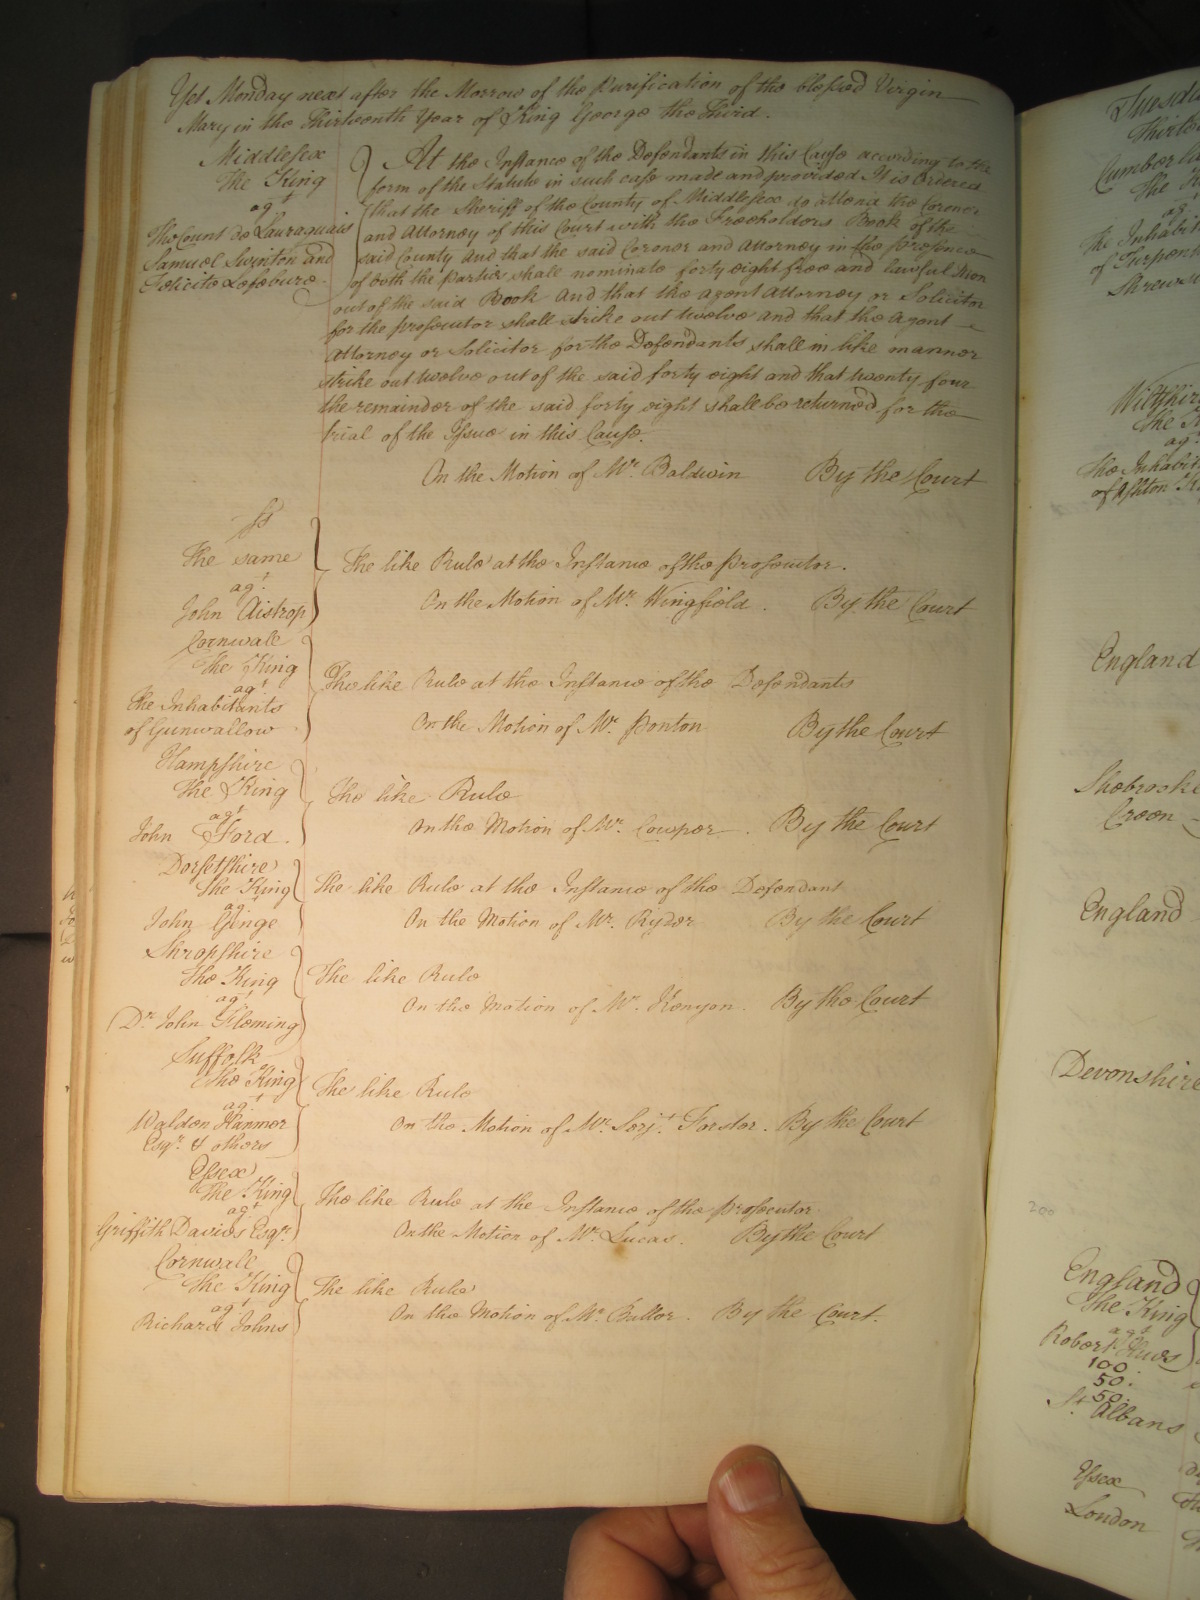 Yet Monday next after the Morrow of the Purification of the blessed Virgin
Mary in the Thirteenth Year of King George the Third.
Middlesex
The King
agt
The Count de Lauraguais
Samuel Swinton and
Felicite Lefebure.
At the Instance of the Defendants in this Cause according to the
form of the Statute in such case made and provided It is Ordered
that the Sheriff of the County of Middlesex do attend the Coroner
and Attorney of this Court with the Freeholders Book of the
said County And that the said Coroner and Attorney in the presence
of both the parties shall nominate forty eight free and lawful Men
out of the said Book And that the Agent Attorney or Solicitor
for the prosecutor shall strike out twelve and that the Agent
Attorney or Solicitor for the Defendants shall in like manner
strike out twelve out of the said forty eight and that twenty four
the remainder of the said forty eight shall be returned for the
trial of the Issue in this Cause.
On the Motion of Mr. Baldwin By the Court
The same
agt.
John Aistrop
The like Rule at the Instance of the prosecutor.
On the Motion of Mr. Wingfield. By the Court
Cornwall
The King
agt
The Inhabitants
of Gunwallow
The like Rule at the Instance of the Defendants
On the Motion of Mr. Ponton By the Court
Hampshire
The King
agt
John Ford.
The like Rule
On the Motion of Mr. Cowper. By the Court
Dorsetshire
The King
agt
John Ginge
The like Rule at the Instance of the Defendant
On the Motion of Mr. Ryder By the Court
Shropshire
The King
agt
Dr. John Fleming
The like Rule
On the Motion of Mr. Kenyon. By the Court
Suffolk
The King
agt
Waldon Hanmer
Esqr. & others
The like Rule
On the Motion of Mr. Serjt. Forster. By the Court
Essex
The King
agt
Griffith Davies Esqr.
The like Rule at the Instance of the prosecutor
On the Motion of Mr. Lucas. By the Court
Cornwall
The King
agt
Richard Johns
The like Rule
On the Motion of Mr. Buller. By the Court.
Tuesda
The Inhabit
of
Wiltshire
The
agt
The Inhabit
of Ashton
England
England
Devonshire
200
England
The King
agt
Robert
100
50.
50.
St. Albans
Essex
London